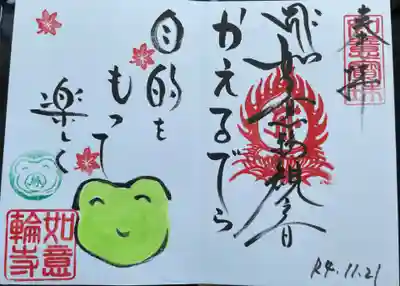 奉拝
如意輪観音
かえるでら
R4.11.21
目的を
もって
楽しく
如意
輪寺